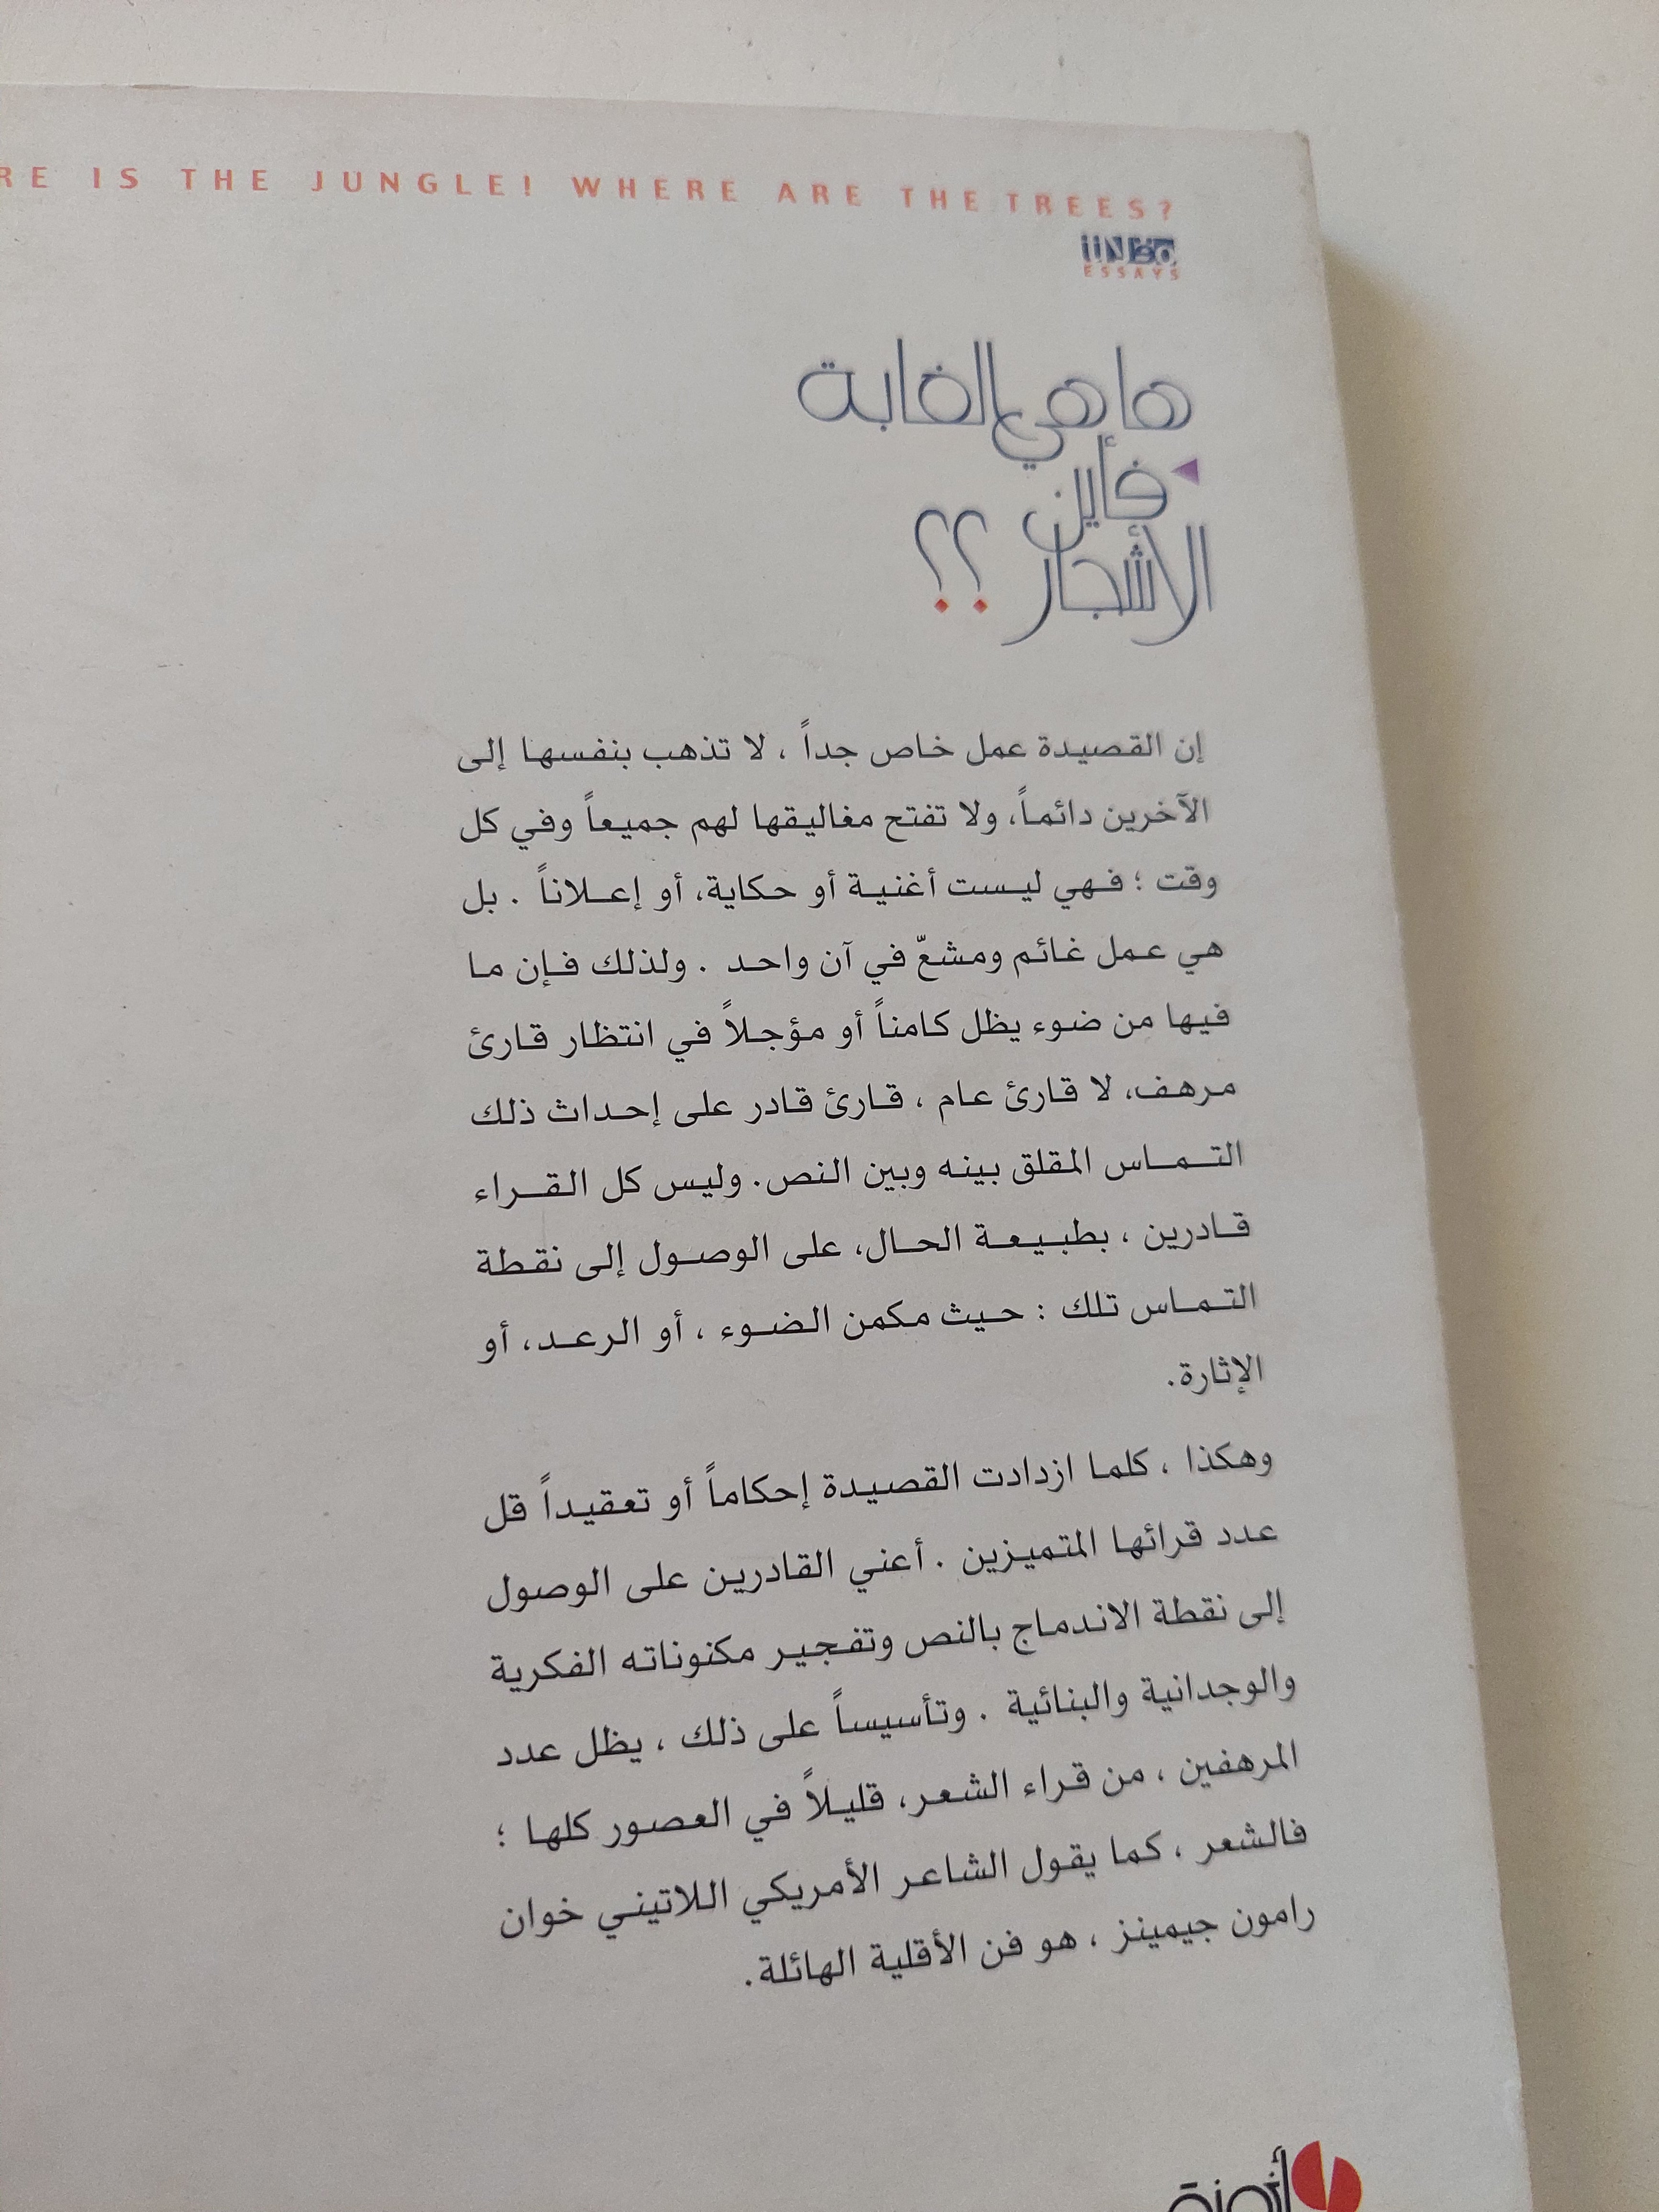 RE IS THE JUNGLE! WHERE ARE THE TREES?
ESSAYS
ها هي الغابة
فأين
الأشجار ؟؟
إن القصيدة عمل خاص جداً ، لا تذهب بنفسها إلى
الآخرين دائماً، ولا تفتح مغاليقها لهم جميعاً وفي كل
وقت ؛ فهي ليست أغنية أو حكاية، أو إعلاناً . بل
هي عمل غائم ومشعّ في آن واحد . ولذلك فإن ما
فيها من ضوء يظل كامناً أو مؤجلاً في انتظار قارئ
مرهف، لا قارئ عام ، قارئ قادر على إحداث ذلك
التماس المقلق بينه وبين النص. وليس كل القراء
قادرين ، بطبيعة الحال، على الوصول إلى نقطة
التماس تلك : حيث مكمن الضوء ، أو الرعد، أو
الإثارة.
وهكذا ، كلما ازدادت القصيدة إحكاماً أو تعقيداً قل
عدد قرائها المتميزين . أعني القادرين على الوصول
إلى نقطة الاندماج بالنص وتفجير مكنوناته الفكرية
والوجدانية والبنائية . وتأسيساً على ذلك ، يظل عدد
المرهفين ، من قراء الشعر، قليلاً في العصور كلها ؛
فالشعر ، كما يقول الشاعر الأمريكي اللاتيني خوان
رامون جيمينز ، هو فن الأقلية الهائلة.
أزمنة